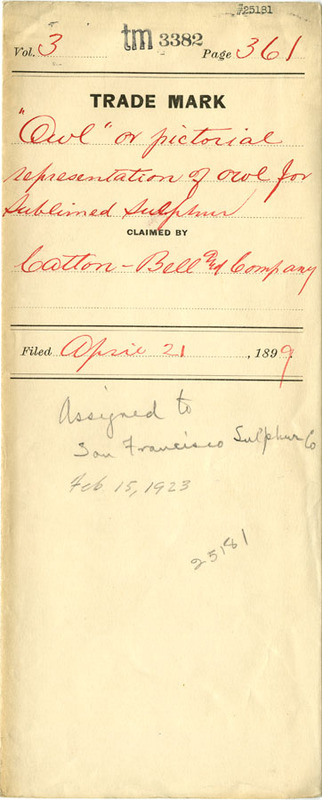 #25181
Vol. 3 tm 3382 Page 361
TRADE MARK
"Owl" or pictorial
representation of owl for
Sublimed Sulphur
CLAIMED BY
Catton-Bell and Company
Filed April 21, 1899
Assigned to
San Francisco Sulphur Co
Feb 15, 1923
25181